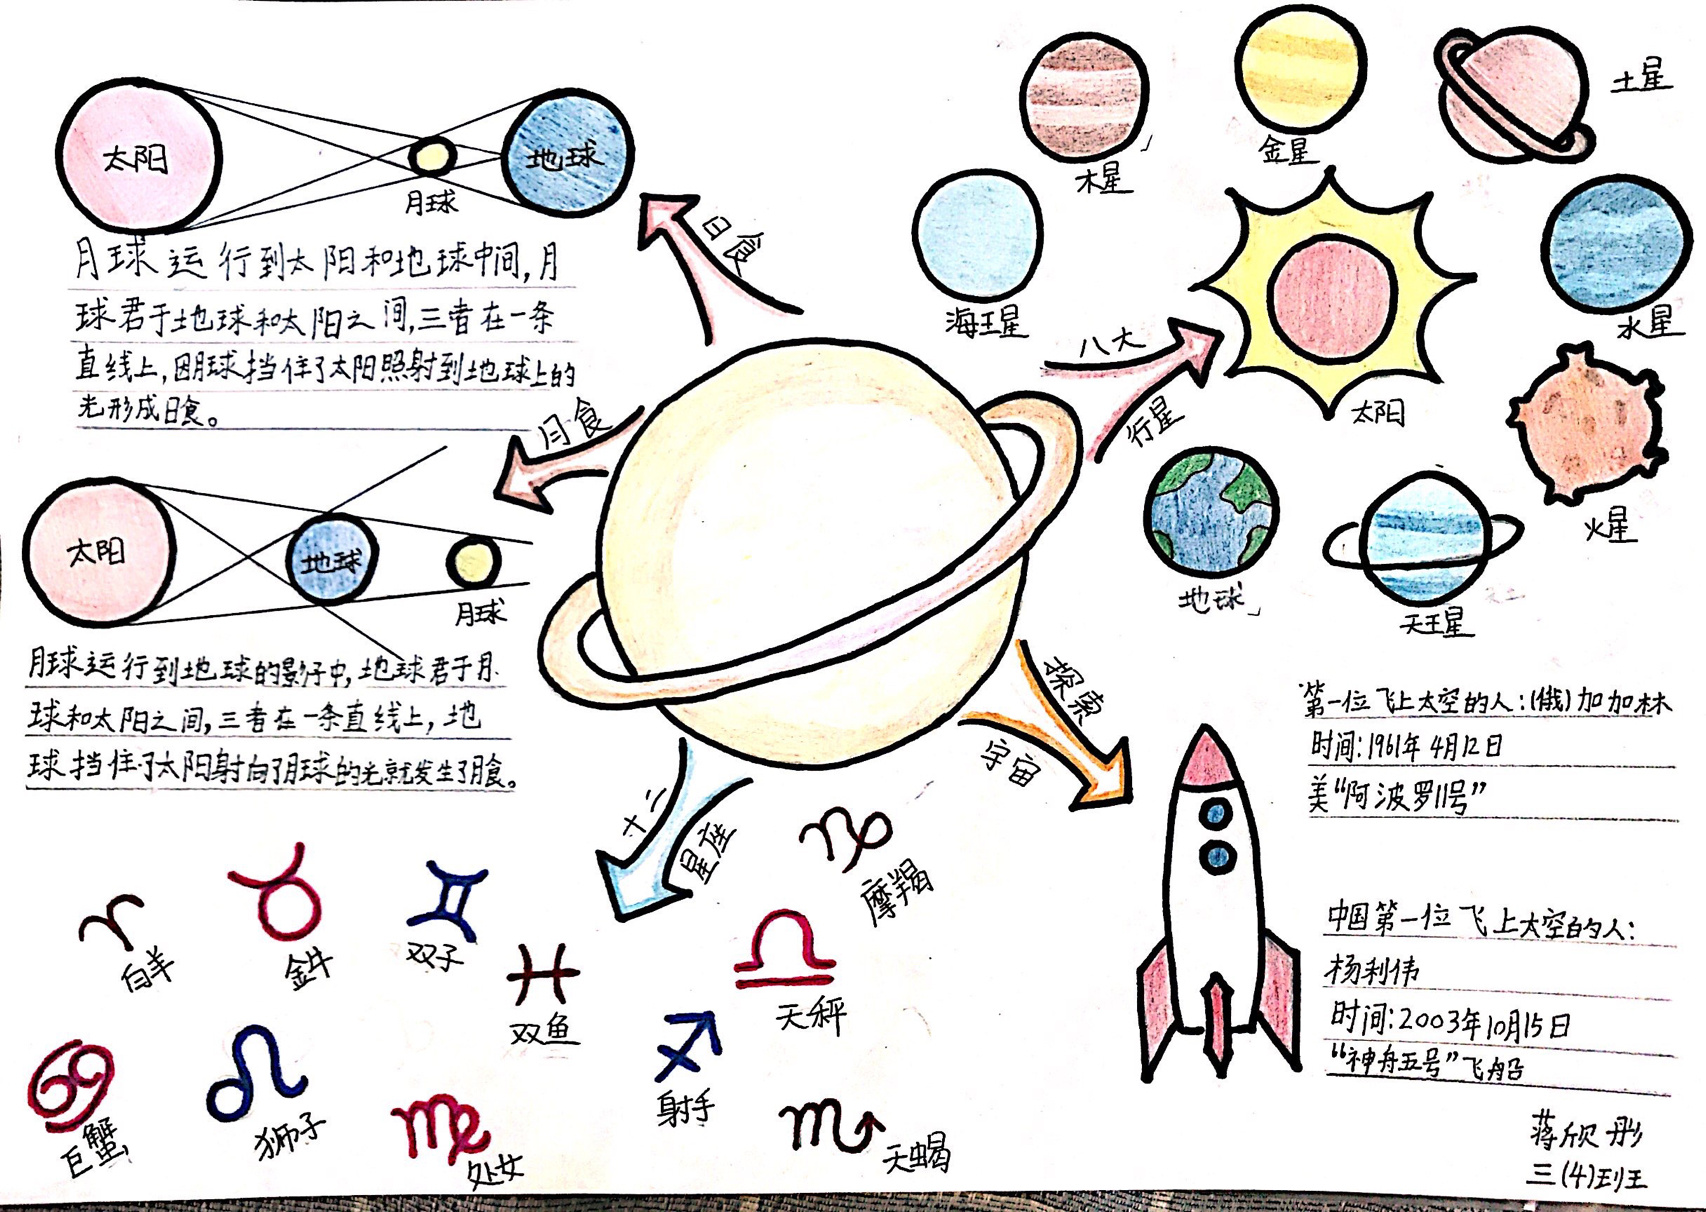 太阳
月球
地球
日食
月球运行到太阳和地球中间,月
球君于地球和太阳之间,三者在一条
直线上,因月球挡住了太阳照射到地球上的
光形成日食。
月食
太阳
地球
月球
月球运行到地球的影仔中,地球君于月
球和太阳之间,三者在一条直线上,地
球挡住了太阳射向了月球的光就发生了月食。
八大
行星
木星
金星
土星
海王星
水星
太阳
火星
地球
天王星
探索
宇宙
第一位飞上太空的人:(俄)加加林
时间:1961年4月12日
美“阿波罗11号”
中国第一位飞上太空的人:
杨利伟
时间:2003年10月15日
“神舟五号”飞船
十二
星座
白羊
金牛
双子
双鱼
天秤
摩羯
巨蟹
狮子
处女
射手
天蝎
蒋欣彤
三(4)班